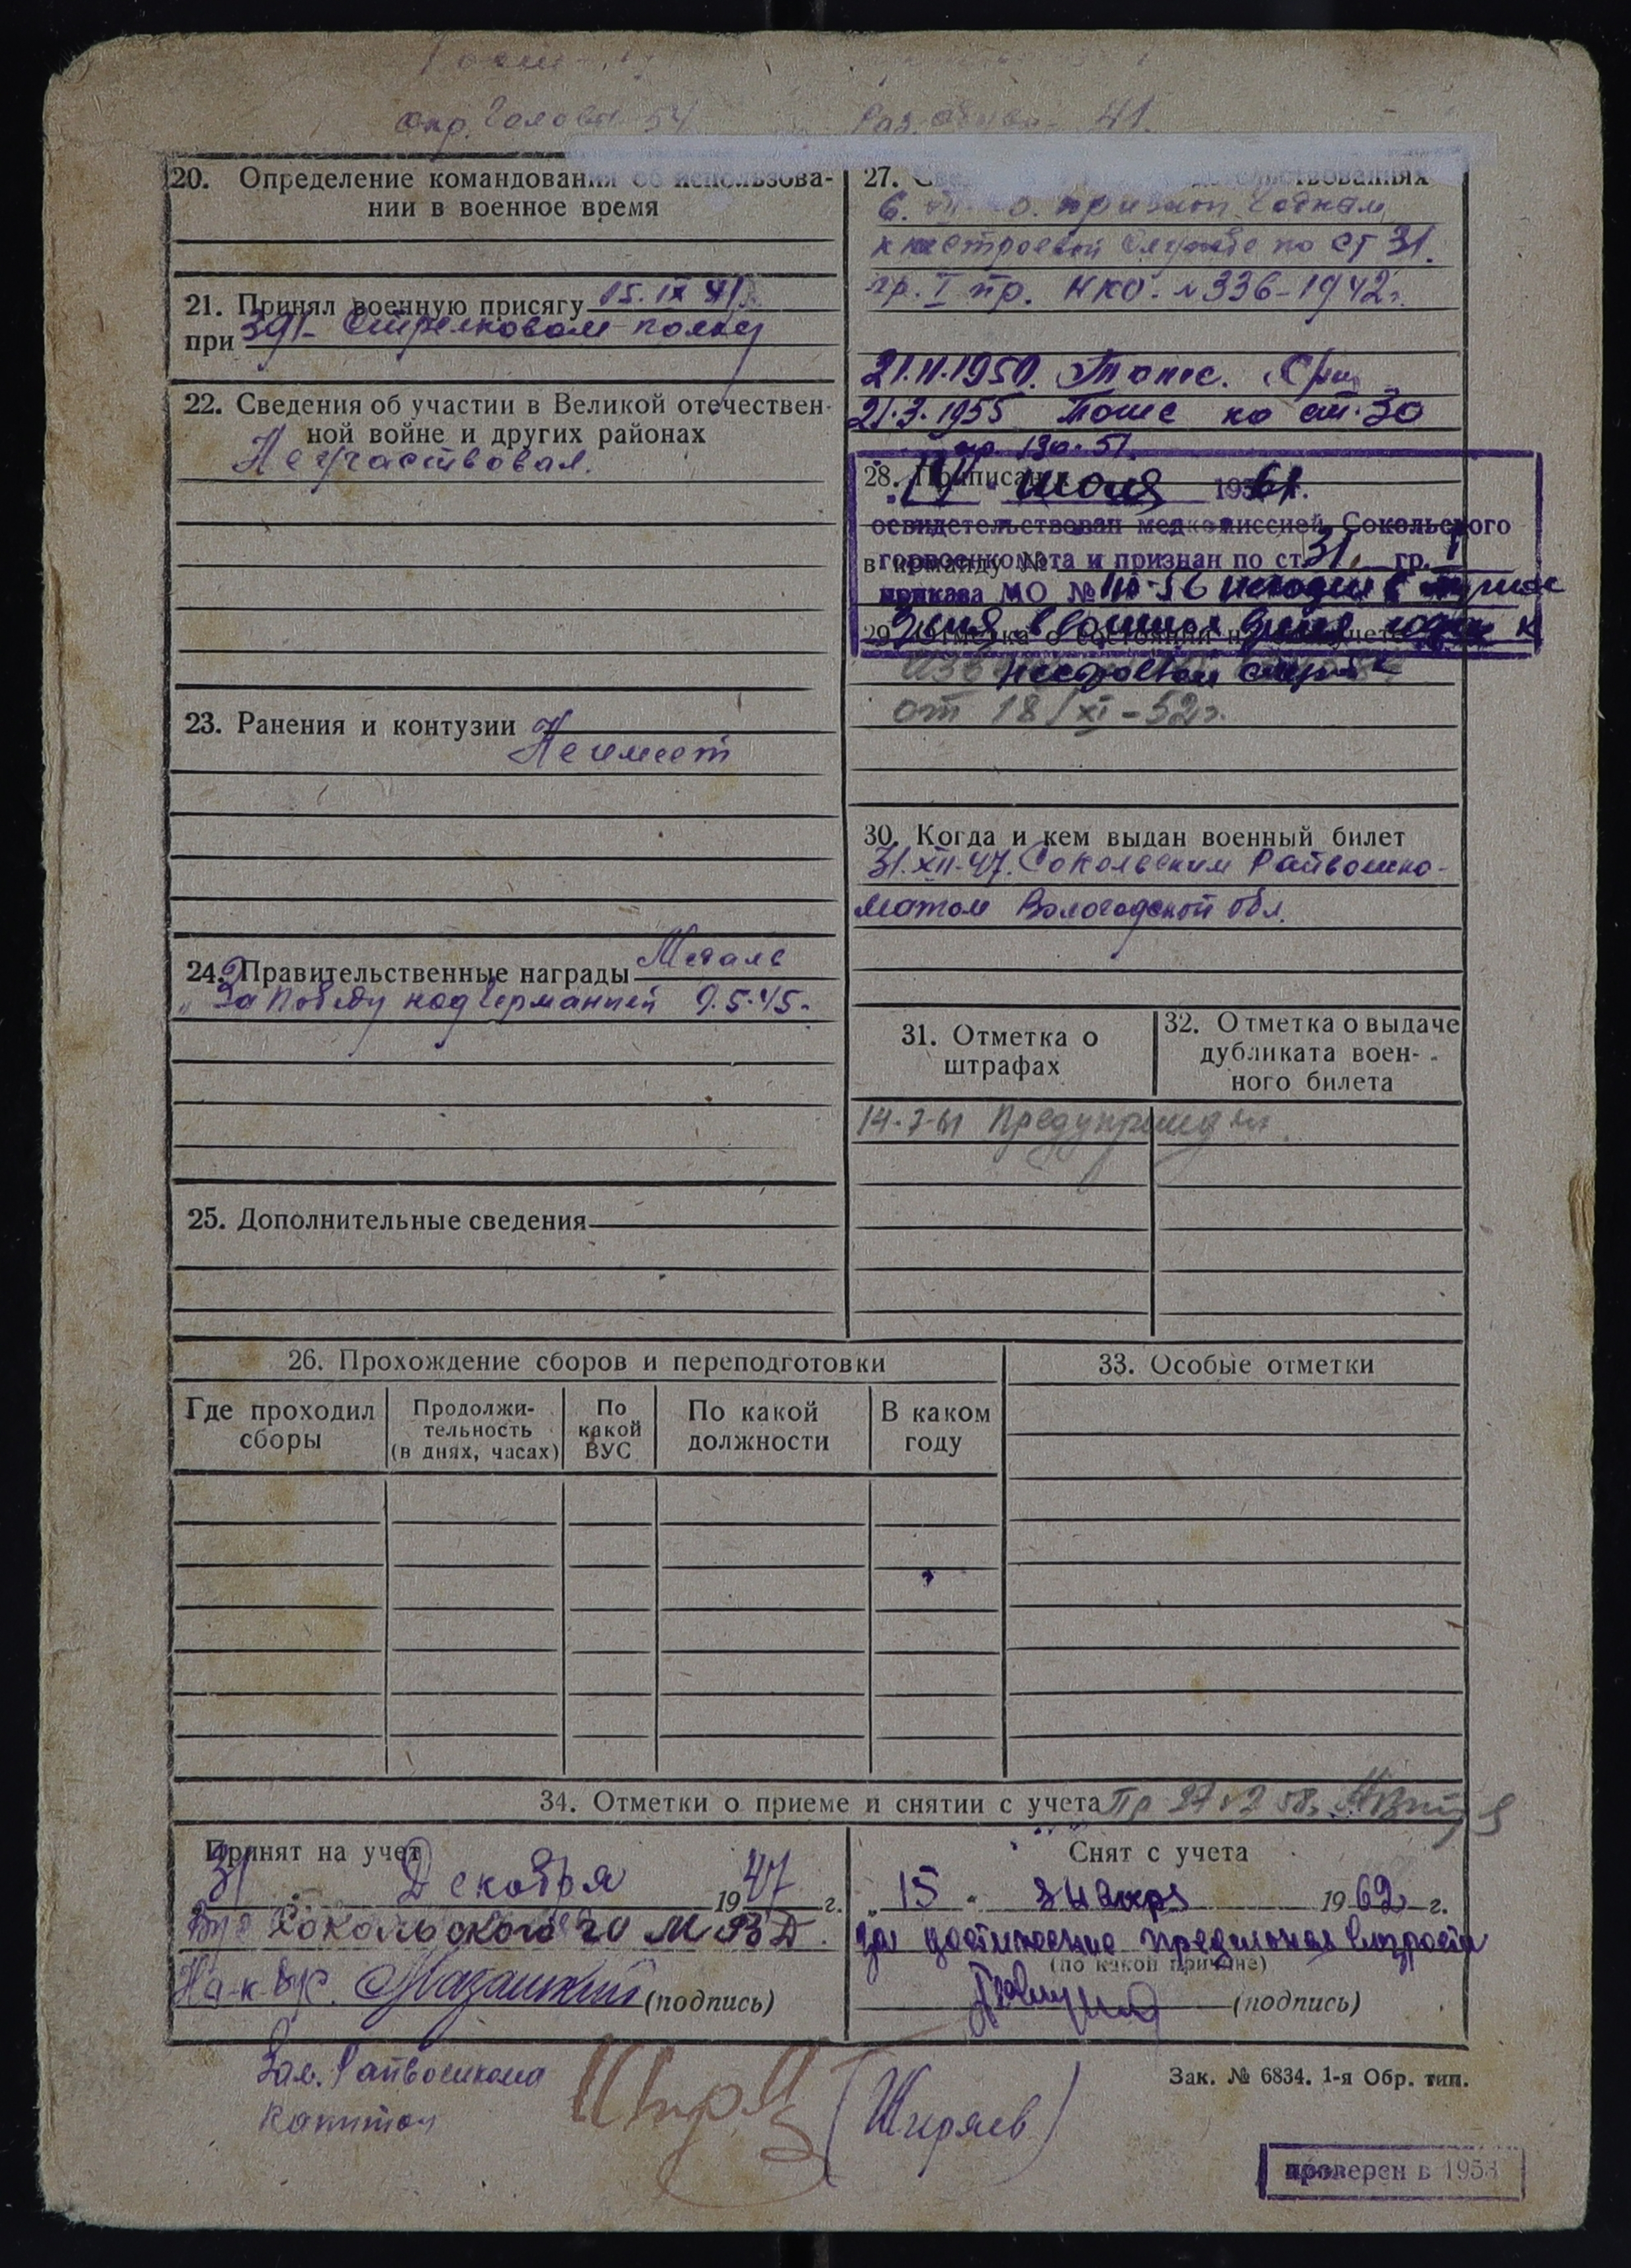 окр. головы 54
Раз. обуви 41.
20. Определение командования об использова-
нии в военное время
21. Принял военную присягу 15.IX 41 г.
при 391 Стрелковом полку
22. Сведения об участии в Великой отечествен-
ной войне и других районах
Не участвовал.
23. Ранения и контузии
Не имеет
24. Правительственные награды Медаль
„За победу над Германией 9.5.45.
25. Дополнительные сведения
26. Прохождение сборов и переподготовки
Где проходил
сборы
Продолжи-
тельность
(в днях, часах)
По
какой
ВУС
По какой
должности
В каком
году
27.
признан годным
к нестроевой службе по ст 31.
гр. I пр. НКО. № 336-1942 г.
21.11.1950. Тоже.
21.3.1955 Тоже по ст. 30
пр. 130-51.
28. Приписан
июля 1961 г.
освидетельствован медкомиссией Сокольского
горвоенкомата и признан по ст. 31. гр. I
в команду №
приказа МО №
29. Отметка о состоянии на учете
нестроевой службе
от 18/XI-52 г.
30. Когда и кем выдан военный билет
31.XII-47. Сокольским Райвоенко-
матом Вологодской обл.
31. Отметка о
штрафах
32. Отметка о выдаче
дубликата воен-
ного билета
14-7-61 Предупрежден.
33. Особые отметки
34. Отметки о приеме и снятии с учета
Принят на учет
31 Декабря 1947 г.
Сокольского го МВД.
(подпись)
Снят с учета
„15" января 1962 г.
за достижение предельного возраста
(по какой причине)
(подпись)
Зам. Райвоенкома
капитан
(Ширяев)
Зак. № 6834. 1-я Обр. тип.
проверен в 1958